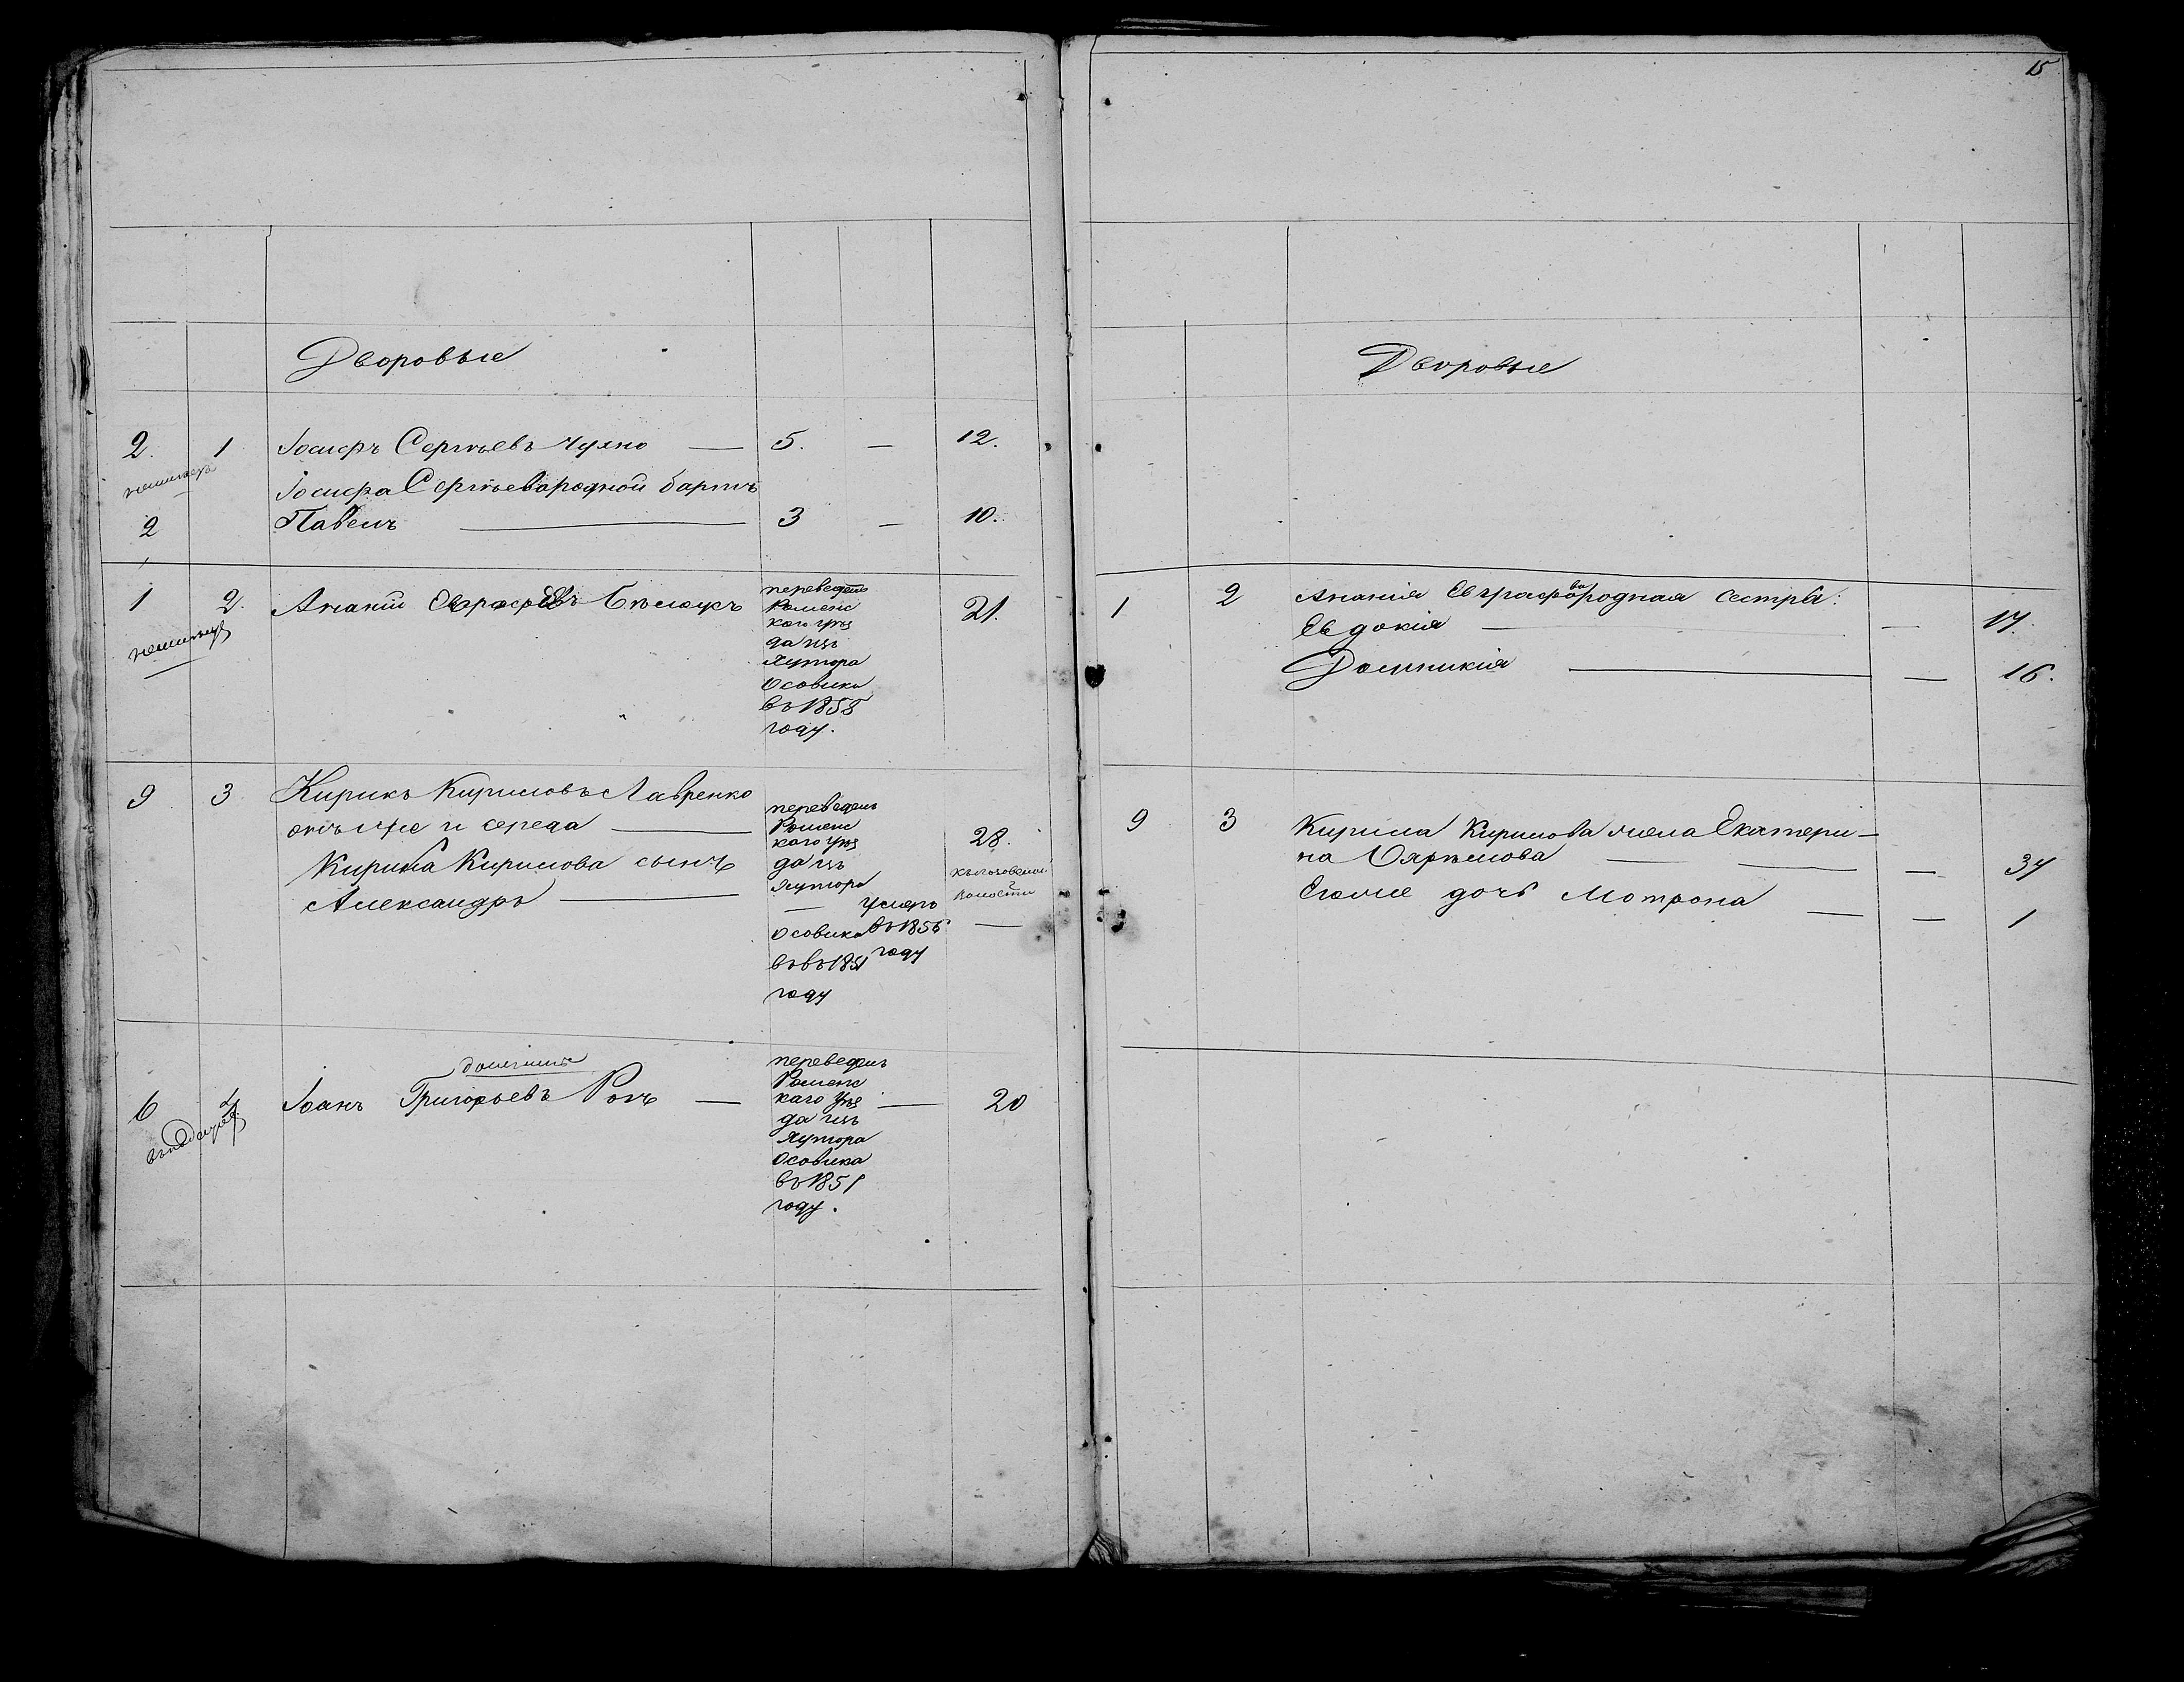 15
Дворовые
2. 1 Іосифъ Сергѣевъ Чухно — 5. — 12.
Іосифа Сергѣева родной братъ
2 Павелъ — 3 — 10.
1 2. Ананій Евграфовъ Бѣлоукъ 21.
переведенъ
Роменс
каго уѣз
да изъ
Хутора
Осовика
въ 1858
году.
9 3 Кирикъ Кириловъ Лавренко
онъ же и середа — 28.
Кирила Кирилова сынъ
Александръ —
переведенъ
Роменс
каго уѣз
да изъ
Хутора
Осовика
въ въ 1851
году
умеръ
въ 1856
году
—
волости
6 4 Іоанъ Григорьевъ Рогъ — — 20
переведенъ
Роменс
каго уѣз
да изъ
Хутора
Осовика
въ 1851
году.
Дворовые
1 2 Ананія Евграфова родная сестры:
Евдокія — — 17.
Домникія — — 16.
9 3 Кирила Кирилова жена Екатери-
на — — 34
Егоже дочь Мотрона — — 1